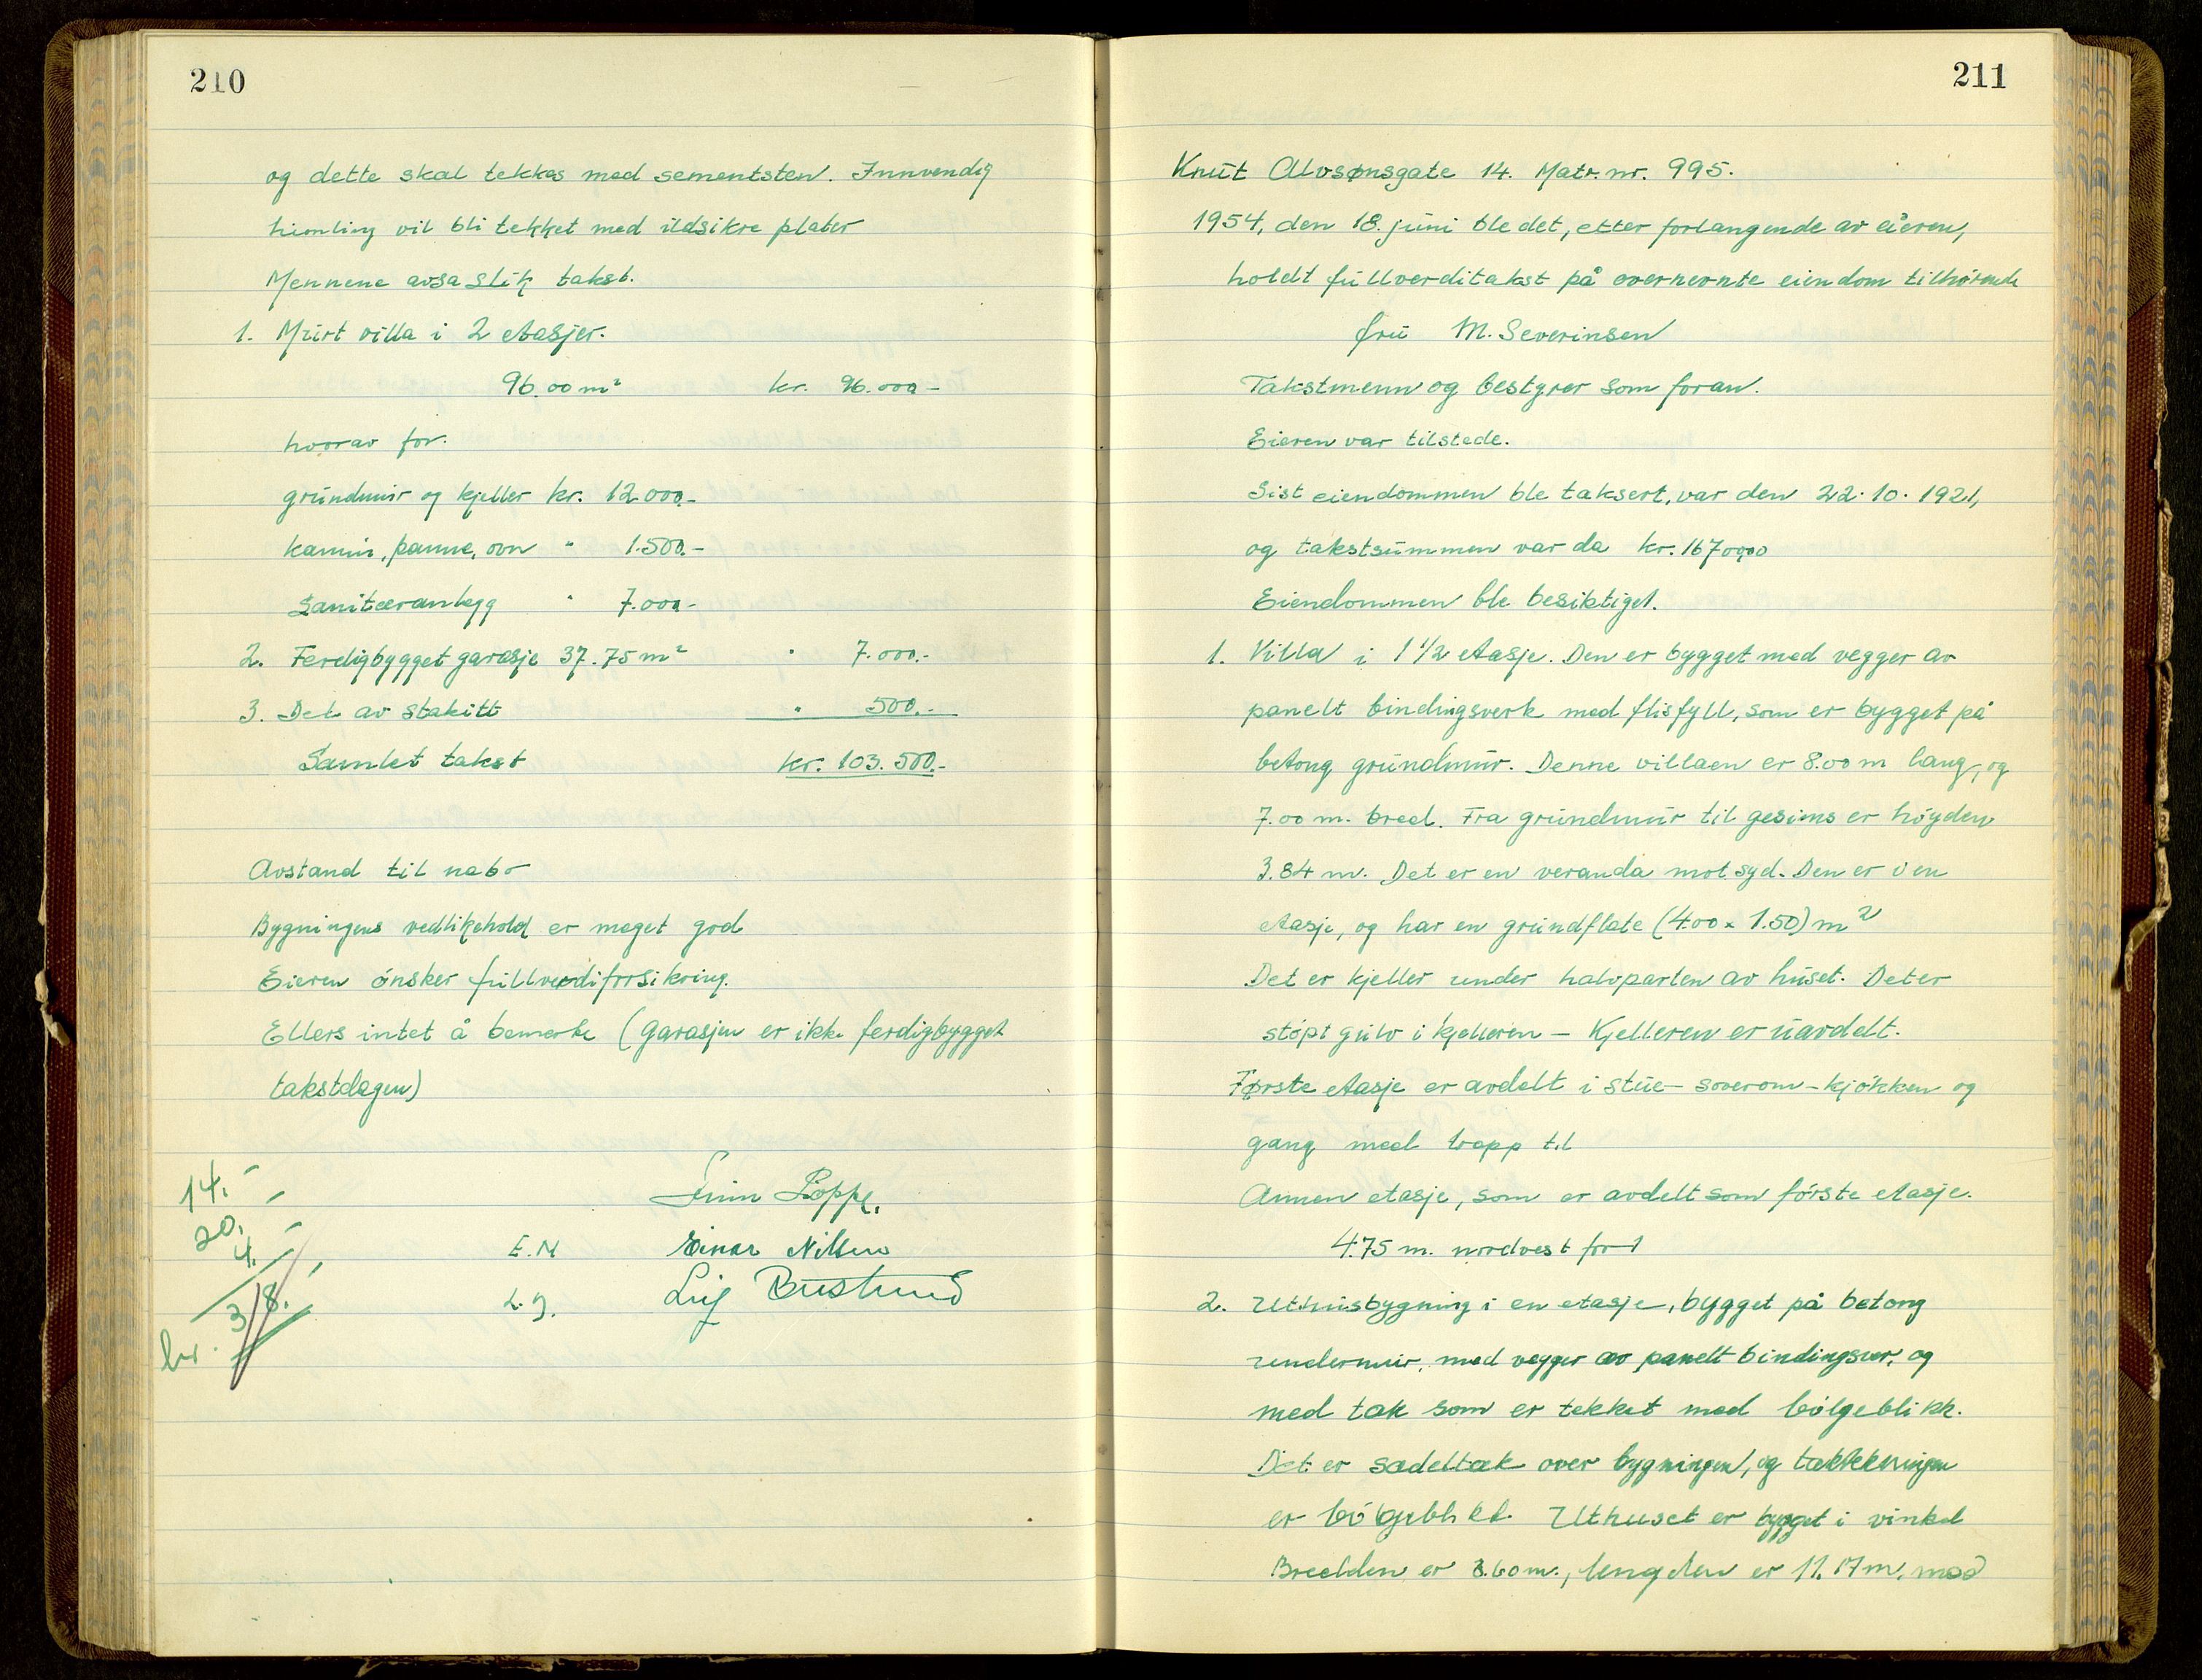 210
og dette skal tekkes med sementsten. Innvendig
himling vil bli tekket med ildsikre plater
Mennene avsa slik takst.
1. Murt villa i 2 etasjer.
96.00 m² kr. 96.000 -
hvorav for.
grundmur og kjeller kr. 12.000.-
kamin, panne, ovn " 1.500.-
Saniteeranlegg " 7.000-
2. Ferdigbygget garasje 37.75 m² " 7.000.-
3. Del av stakitt " 500.-
Samlet takst kr. 103.500.-
Avstand til nabo
Bygningens vedlikehold er meget god
Eieren ønsker fullverdiforsikring.
Ellers intet å bemerke (garasjen er ikke ferdigbygget
takstdagen)
14.-
20.-
4.-
kr. 38.-
E.N Einar Nilsen
L.J.
211
Knut Alvsønsgate 14. Matr. nr. 995.
1954, den 18. juni ble det, etter forlangende av eieren,
holdt fullverditakst på overnevnte eiendom tilhørende
fru M. Severinsen
Takstmenn og bestyrer som foran.
Eieren var tilstede.
Sist eiendommen ble taksert, var den 22.10.1921,
og takstsummen var da kr. 16700,00
Eiendommen ble besiktiget.
1. Villa i 1 1/2 etasje. Den er bygget med vegger av
panelt bindingsverk med flisfyll, som er bygget på
betong grundmur. Denne villaen er 8.00 m lang, og
7.00 m. bred. Fra grundmur til gesims er høyden
3.84 m. Det er en veranda mot syd. Den er i en
etasje, og har en grundflate (4.00 x 1.50) m²
Det er kjeller under halvparten av huset. Det er
støpt gulv i kjelleren - Kjelleren er uavdelt.
Første etasje er avdelt i stue - soverom - kjøkken og
gang med trapp til
Annen etasje, som er avdelt som første etasje.
4.75 m. nordvest for 1
2. Uthusbygning i en etasje, bygget på betong
undermur, med vegger av panelt bindingsver, og
med tak som er tekket med bølgeblikk.
Det er sadeltak over bygningen, og
er Uthuset er bygget i vinkel
Bredden er 3.60 m., lengden er 11.17 m. med